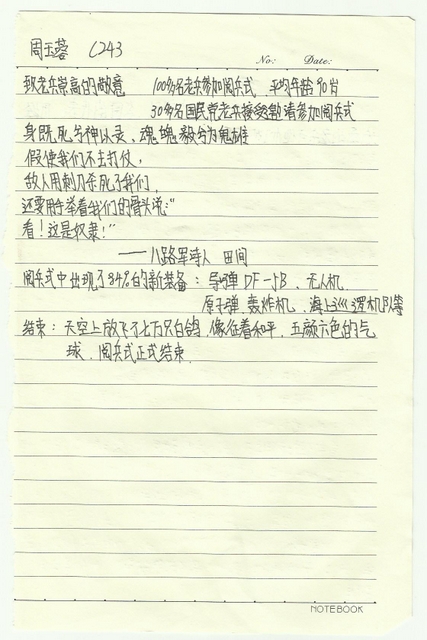 周玉蓉 C243
No: Date:
致老兵崇高的敬意 100多名老兵参加阅兵式 平均年龄90岁
30多名国民党老兵接受邀请参加阅兵式
身既死兮神以灵、魂魄毅兮为鬼雄
假使我们不去打仗，
敌人用刺刀杀死了我们，
还要用手举着我们的骨头说："
看！这是奴隶！"
——八路军诗人 田间
阅兵式中出现了84%的新装备：导弹DF-5B、无人机
原子弹 轰炸机、海上巡逻机队等
结束：天空上放飞了七万只白鸽，像征着和平，五颜六色的气
球、阅兵式正式结束
NOTEBOOK